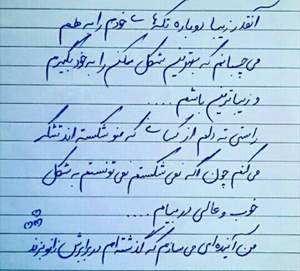 آنقدر زیبا دوباره تکه های خودم را به هم
می چسبانم که بهترین شکل ممکن را به خود بگیرم
و زیباترین باشم ....
راستی ته دلم از کسایی که منو شکسته اند تشکر
می کنم چون اگه نمی شکستم نمی تونستم به شکل
خوب و عالی دربیام ....
من آینده ای می سازم که گذشته ام در برابرش زانو بزند